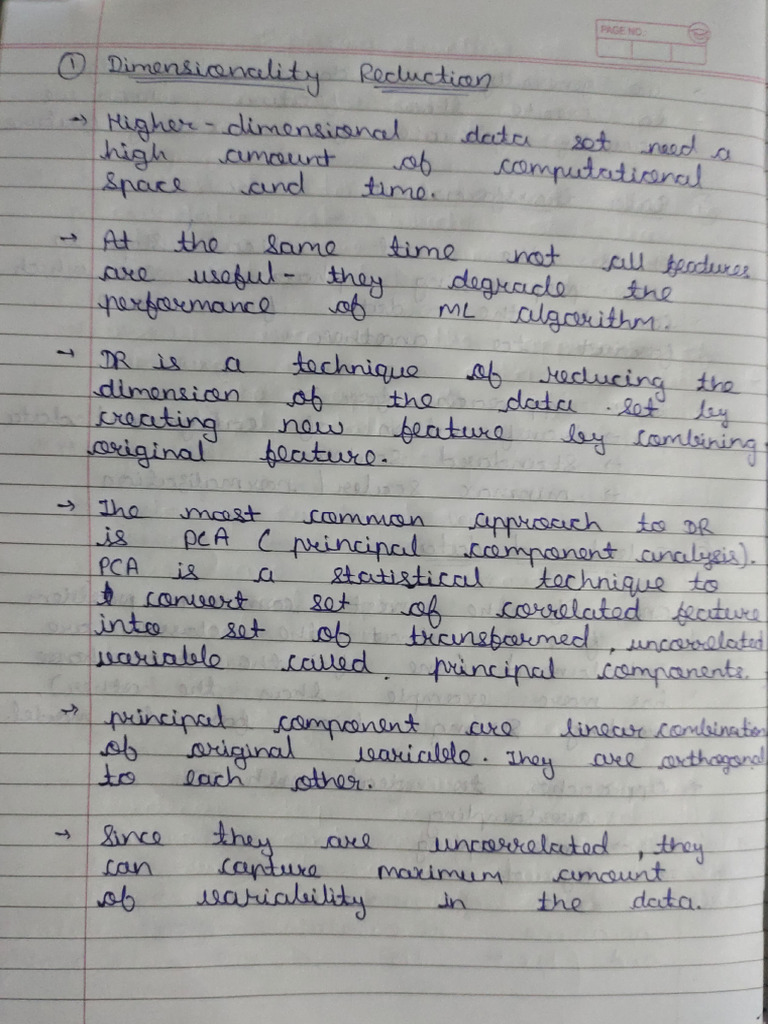 PAGE NO.
① Dimensionality Reduction
→ Higher-dimensional data set need a
high amount of computational
space and time.
→ At the same time not all features
are useful - they degrade the
performance of ML algorithm.
→ DR is a technique of reducing the
dimension of the data set by
creating new feature by combining
original feature.
→ The most common approach to DR
is PCA (principal component analysis).
PCA is a statistical technique to
convert set of correlated feature
into set of transformed, uncorrelated
variable called principal components.
→ principal component are linear combination
of original variable. They are orthogonal
to each other.
→ Since they are uncorrelated, they
can capture maximum amount
of variability in the data.